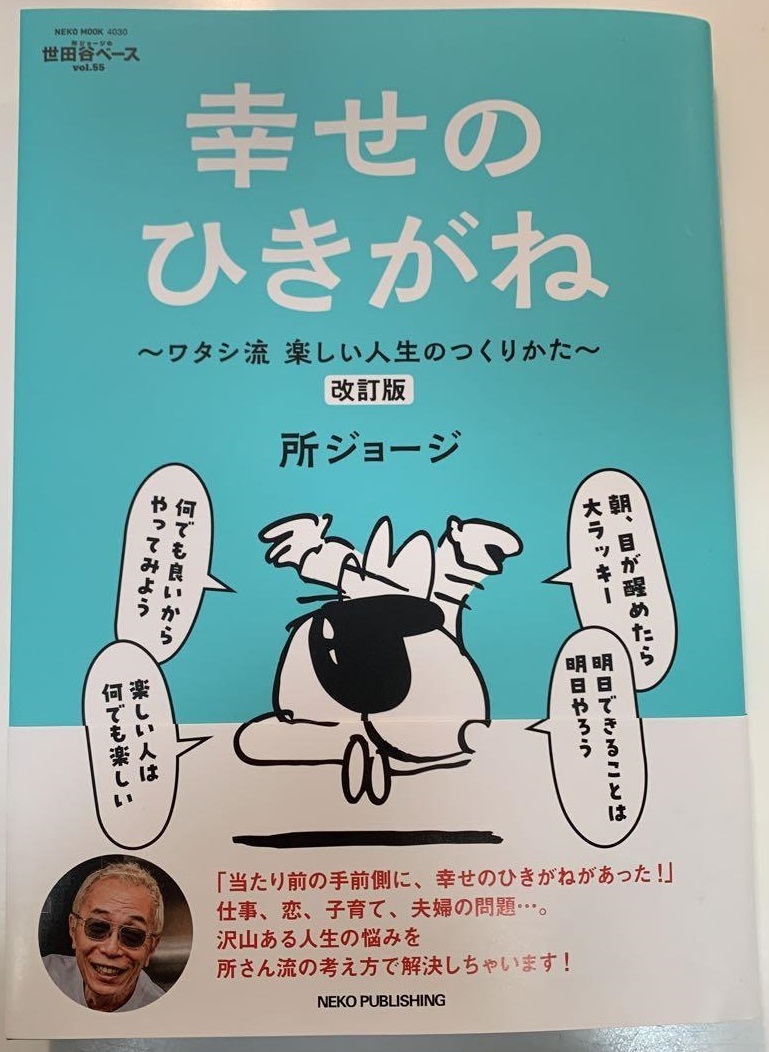 NEKO MOOK 4030
所ジョージの
世田谷ベース
vol.55
幸せの
ひきがね
～ワタシ流 楽しい人生のつくりかた～
改訂版
所ジョージ
朝、目が醒めたら
大ラッキー
何でも良いから
やってみよう
明日できることは
明日やろう
楽しい人は
何でも楽しい
「当たり前の手前側に、幸せのひきがねがあった！」
仕事、恋、子育て、夫婦の問題…。
沢山ある人生の悩みを
所さん流の考え方で解決しちゃいます！
NEKO PUBLISHING